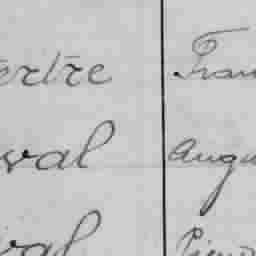 ertre Fran
val Augu
val Pierr